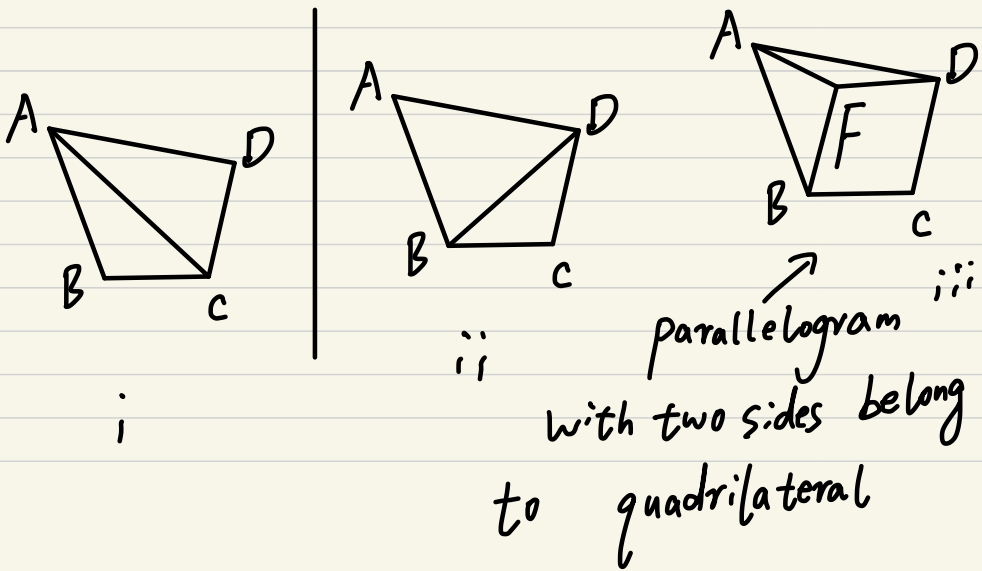 A
D
B
C
i
A
D
B
C
ii
A
D
F
B
C
iii
parallelogram
with two sides belong
to quadrilateral